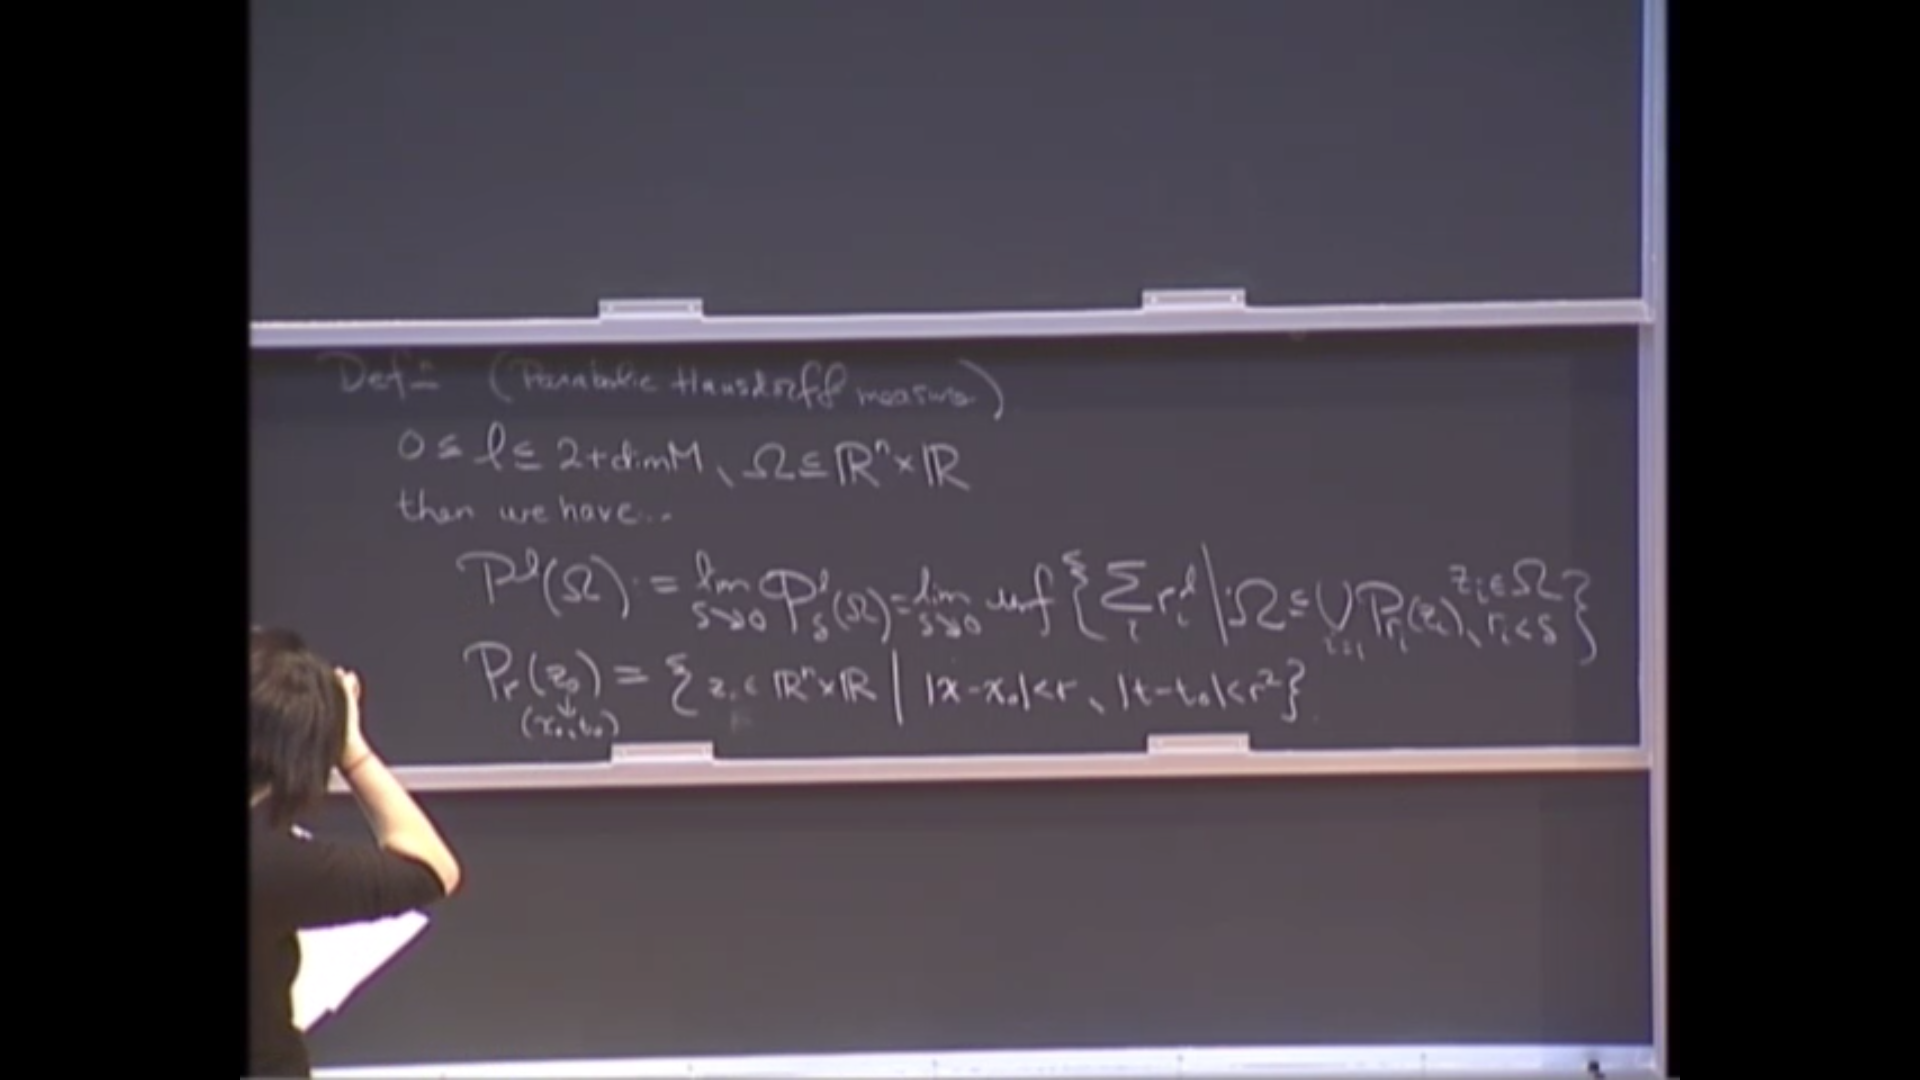 Defⁿ (Parabolic Hausdorff measure)
0 ≤ l ≤ 2+dimM, Ω ⊆ ℝⁿ×ℝ
then we have...
𝒫ˡ(Ω) = lim_{δ↘0} 𝒫ˡ_δ(Ω) = lim_{δ↘0} inf { Σ_i r_i^l | Ω ⊆ ⋃_{i=1} P_{r_i}(z_i), z_i ∈ Ω, r_i < δ }
P_r(z_0) = { z ∈ ℝⁿ×ℝ | |x-x_0|<r, |t-t_0|<r² }
↓
(x_0,t_0)